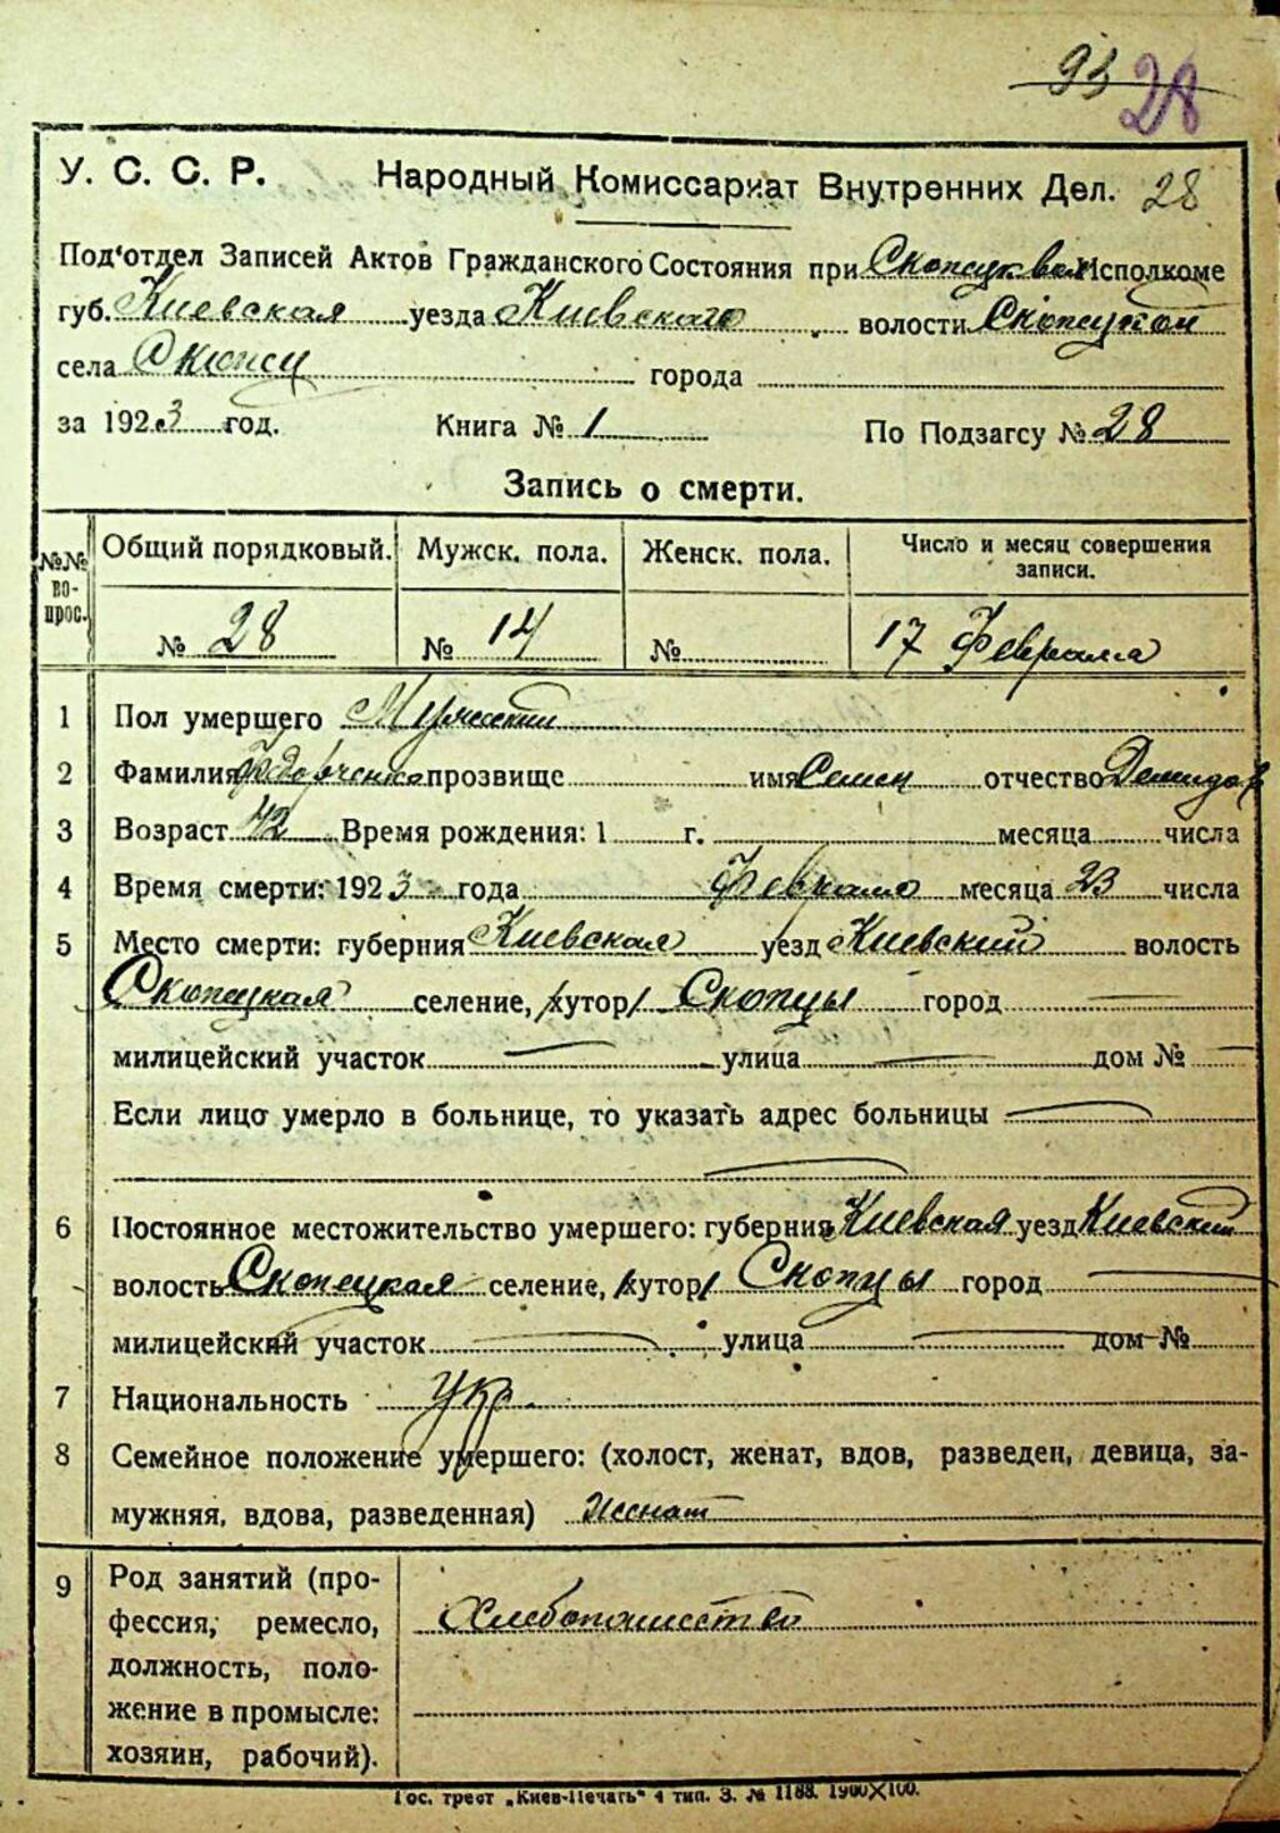 93 28
У. С. С. Р. Народный Комиссариат Внутренних Дел. 28
Под'отдел Записей Актов Гражданского Состояния при Исполкоме
губ. Киевская уезда Киевского волости Скопецкой
села Скопцы города
за 1923 год. Книга № 1 По Подзагсу № 28
Запись о смерти.
№№ во-прос. Общий порядковый. Мужск. пола. Женск. пола. Число и месяц совершения записи.
№ 28 № 14 № 17 Февраля
1 Пол умершего Мужской
2 Фамилия Федорченко прозвище имя Семен отчество Демидов
3 Возраст 42 Время рождения: 1 г. месяца числа
4 Время смерти: 1923 года Февраля месяца 23 числа
5 Место смерти: губерния Киевская уезд Киевский волость
Скопецкая селение, /хутор/ Скопцы город —
милицейский участок — улица — дом № —
Если лицо умерло в больнице, то указать адрес больницы —
—
6 Постоянное местожительство умершего: губерния Киевская уезд Киевский
волость Скопецкая селение, /хутор/ Скопцы город —
милицейский участок — улица — дом №
7 Национальность укр.
8 Семейное положение умершего: (холост, женат, вдов, разведен, девица, за-
мужняя, вдова, разведенная) Женат
9 Род занятий (про-
фессия, ремесло,
должность, поло-
жение в промысле:
хозяин, рабочий).
Хлебопашество
Гос. трест „Киев-Печать" 4 тип. З. № 1188. 1900×100.